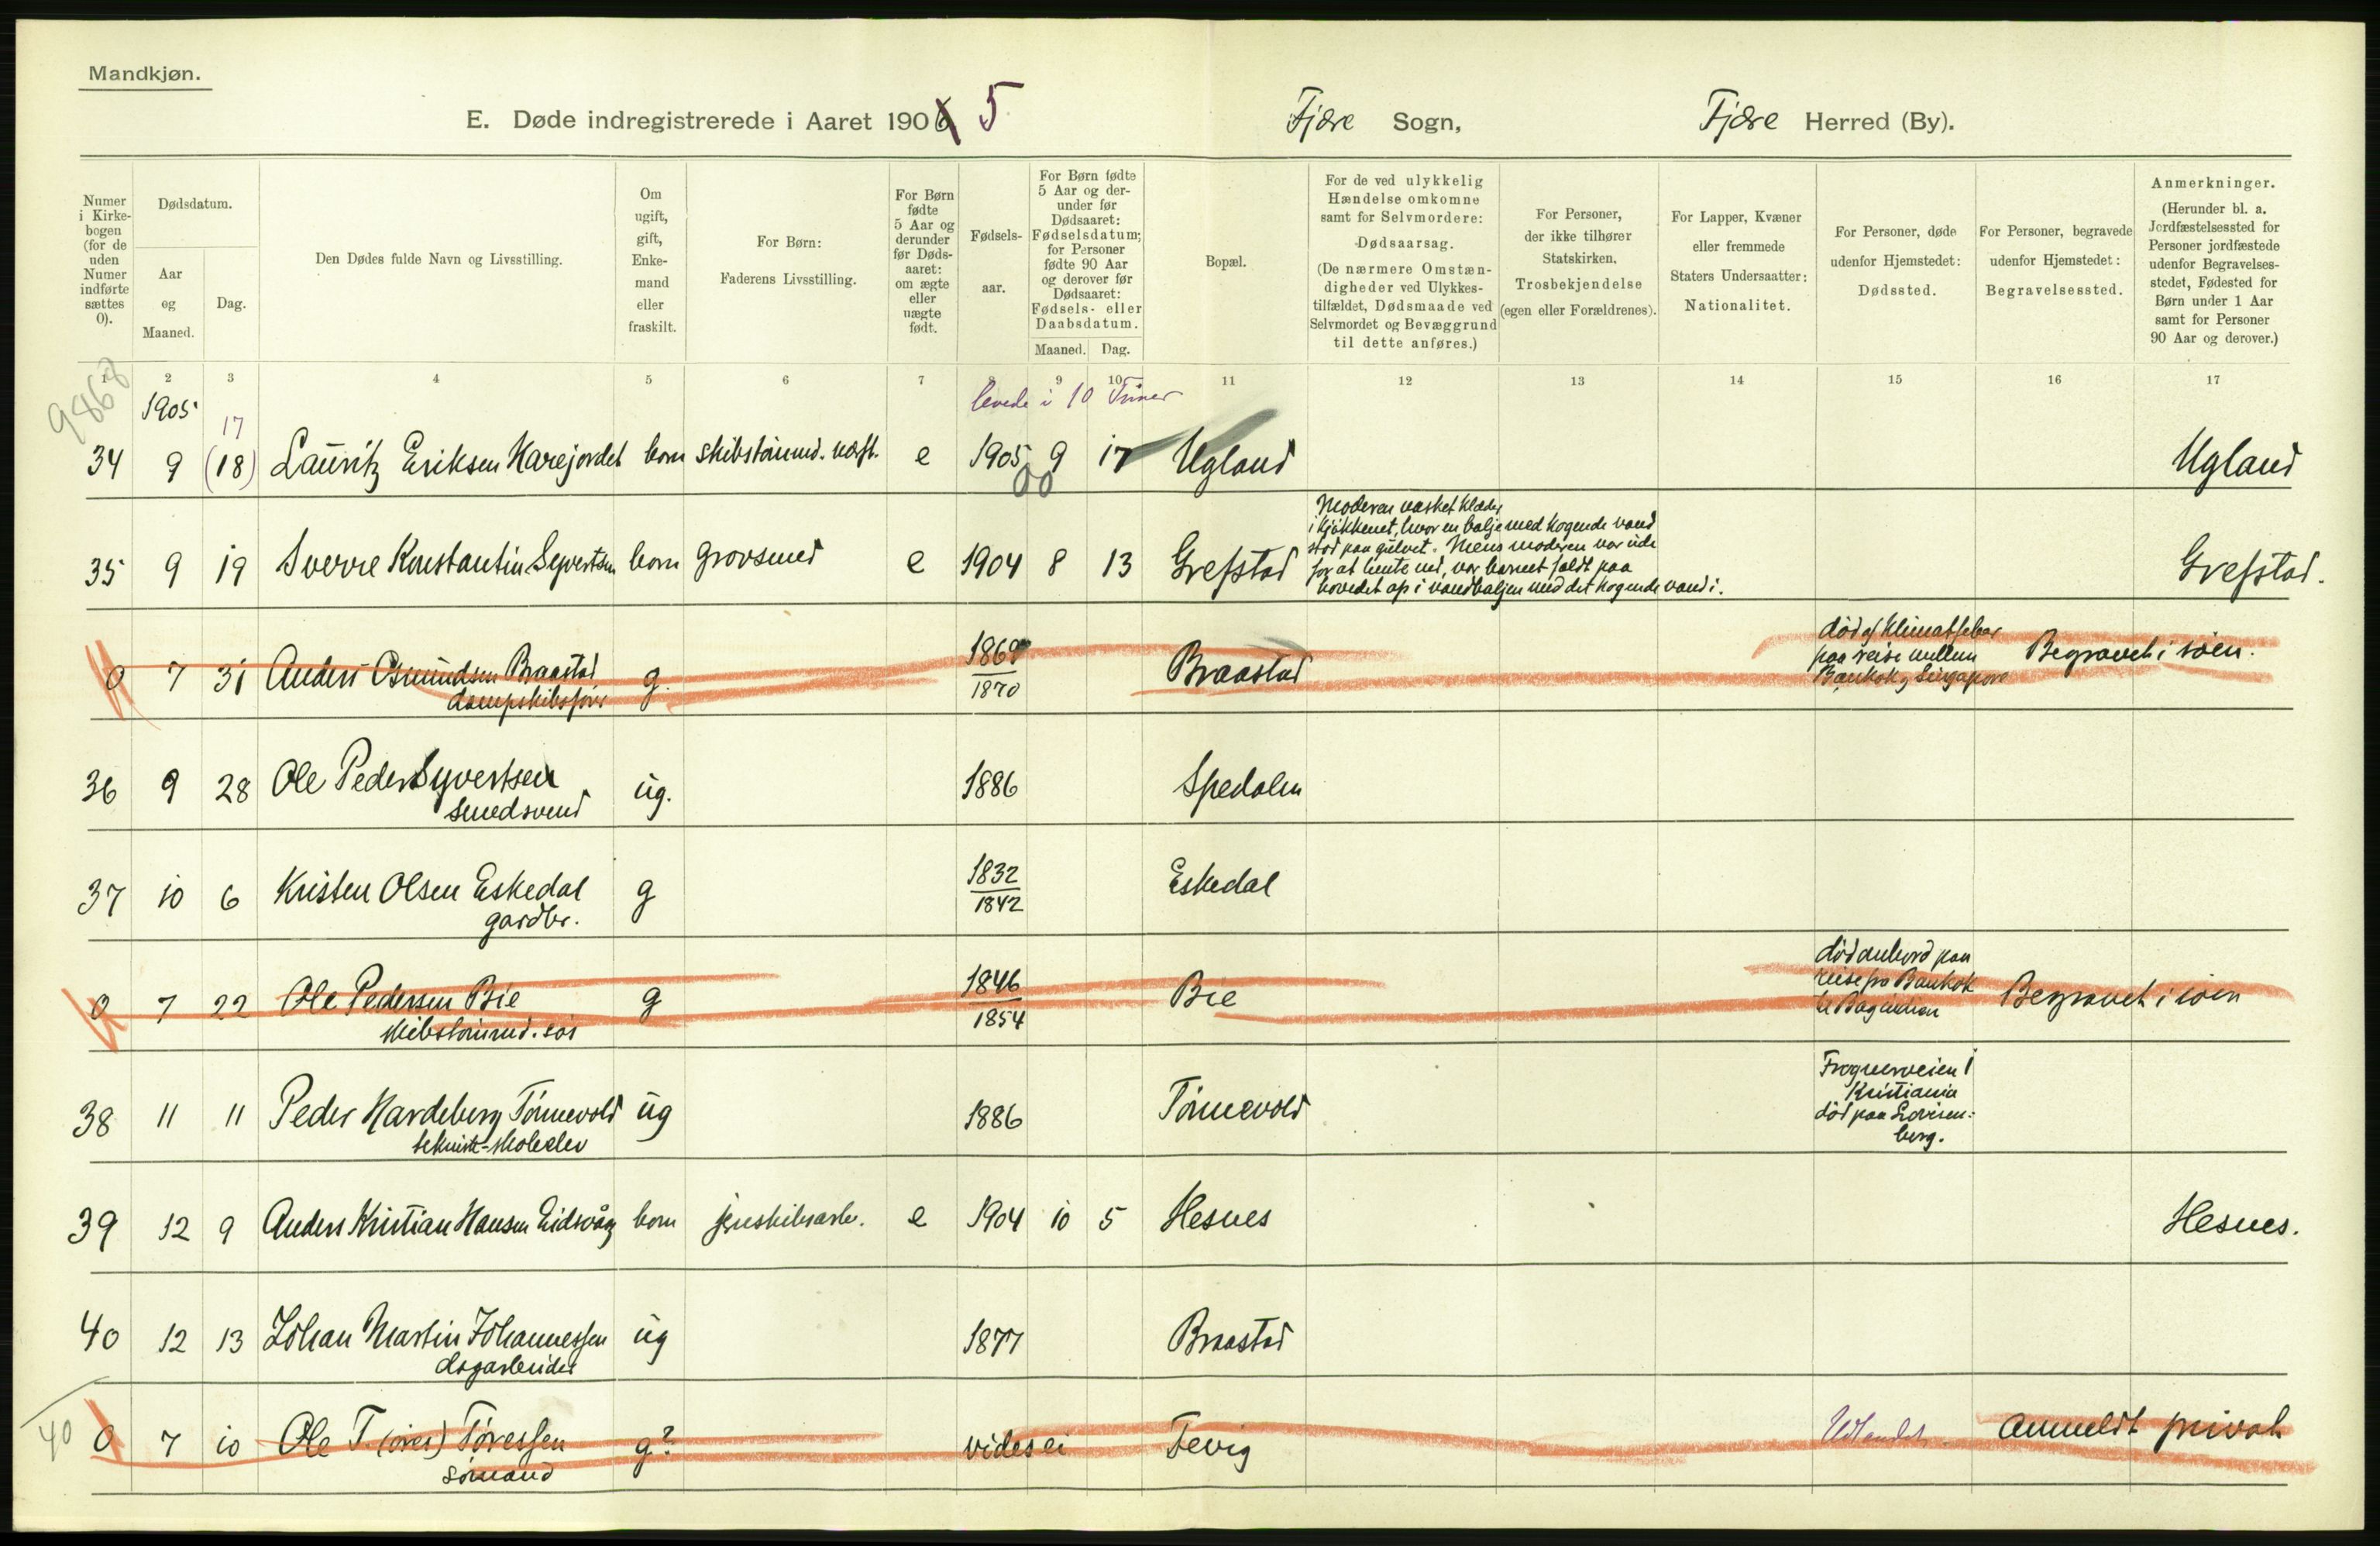 Mandkjøn.
E. Døde indregistrerede i Aaret 1906 5 Fjære Sogn, Fjære Herred (By).
Numer i Kirkebogen (for de uden Numer indførte sættes 0).
Dødsdatum.
Aar og Maaned.
Dag.
Den Dødes fulde Navn og Livsstilling.
Om ugift, gift, Enkemand eller fraskilt.
For Børn: Faderens Livsstilling.
For Børn fødte 5 Aar og derunder før Dødsaaret: om ægte eller uægte født.
Fødselsaar.
For Børn fødte 5 Aar og derunder før Dødsaaret: Fødselsdatum; for Personer fødte 90 Aar og derover før Dødsaaret: Fødsels- eller Daabsdatum.
Maaned. Dag.
Bopæl.
For de ved ulykkelig Hændelse omkomne samt for Selvmordere: Dødsaarsag. (De nærmere Omstændigheder ved Ulykkestilfældet, Dødsmaade ved Selvmordet og Bevæggrund til dette anføres.)
For Personer, der ikke tilhører Statskirken, Trosbekjendelse (egen eller Forældrenes).
For Lapper, Kvæner eller fremmede Staters Undersaatter: Nationalitet.
For Personer, døde udenfor Hjemstedet: Dødssted.
For Personer, begravede udenfor Hjemstedet: Begravelsessted.
Anmerkninger. (Herunder bl. a. Jordfæstelsessted for Personer jordfæstede udenfor Begravelsesstedet, Fødested for Børn under 1 Aar samt for Personer 90 Aar og derover.)
1 2 3 4 5 6 7 8 9 10 11 12 13 14 15 16 17
9868
1905 17 levede i 10 Timer
34 9 (18) Lauritz Eriksen Harejordet barn skibstømmd. e 1905 9 17 Ugland Ugland
00
35 9 19 Sverre Konstantin Syvertsen barn grovsmed e 1904 8 13 Grefstad Grefstad.
Moderen vasket klæder
i kjøkkenet, hvor en balje med kogende vand
stod paa gulvet. Mens moderen var ude
for at hente ved, var barnet faldt paa
hovedet op i vandbaljen med det kogende vand i.
0 7 31 Anders Osmundsen Braastad g. 1869 Braastad død af Klimatfeber Begravet i søen.
dampskibsfører 1870 paa reise mellem
Bankok og Singapore
36 9 28 Ole Peder Syvertsen ug. 1886 Spedalen
Smedsvend
37 10 6 Kristen Olsen Eskedal g 1832 Eskedal
gardbr. 1842
0 7 22 Ole Pedersen Bie g 1846 Bie død ombord paa Begravet i søen
skibstømmd. 1854 reise fra Bankok
38 11 11 Peder Hardeberg Tønnevold ug 1886 Tønnevold Frognerveien 1
teknisk-skoleelev Kristiania
død paa Lovisen=
berg.
39 12 9 Anders Kristian Hansen Eidsvåg barn jernskibsarb. e 1904 10 5 Hesnes Hesnes.
40 12 13 Johan Martin Johannessen ug 1877 Braastad
dagarbeider
40
0 7 10 Ole T. (ores) Toressen g? vides ei Fevig Udlandet. anmeldt privat
sømand